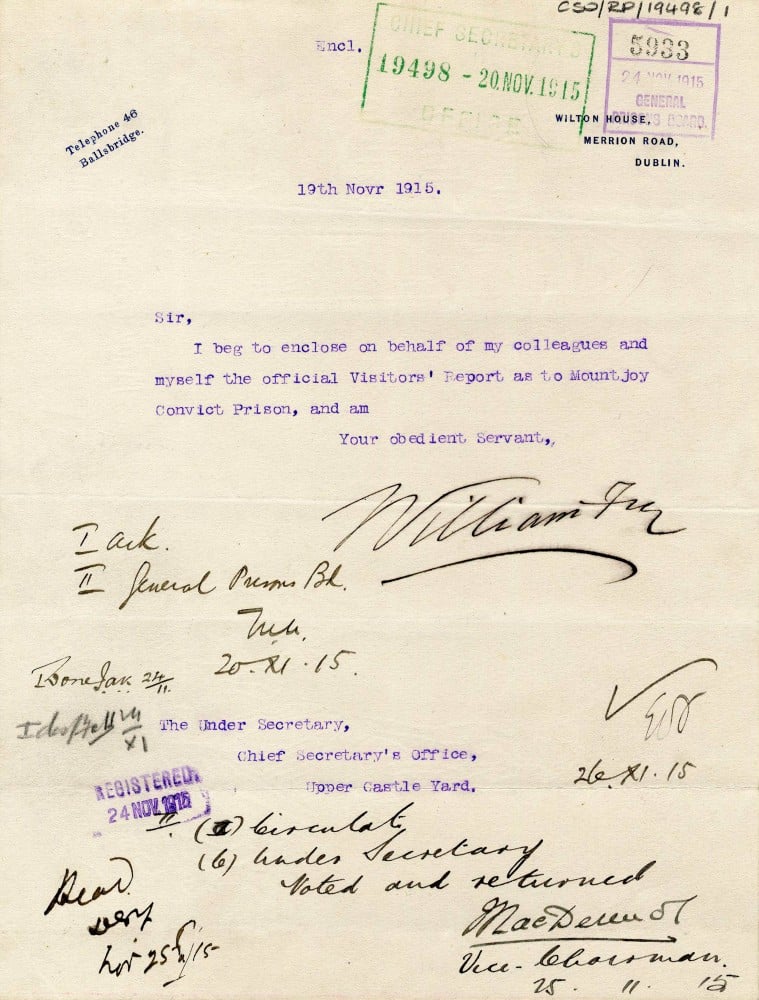 CSO/RP/19498/1
Encl.
CHIEF SECRETARY'S
19498 - 20.NOV.1915
OFFICE
5933
24 NOV 1915
GENERAL
PRISONS BOARD.
Telephone 46
Ballsbridge.
WILTON HOUSE,
MERRION ROAD,
DUBLIN.
19th Novr 1915.
Sir,
I beg to enclose on behalf of my colleagues and
myself the official Visitors' Report as to Mountjoy
Convict Prison, and am
Your obedient Servant,,
William Fry
I Ack.
II General Prisons Bd.
20.XI.15.
I Done 24/11
24/XI
The Under Secretary,
Chief Secretary's Office,
Upper Castle Yard.
26.XI.15
REGISTERED
24 NOV. 1915
II. (a) Circulate
(b) Under Secretary
Noted and returned
MacDermot
Vice-Chairman.
25. 11. 15
Read.
Nov 25th/15